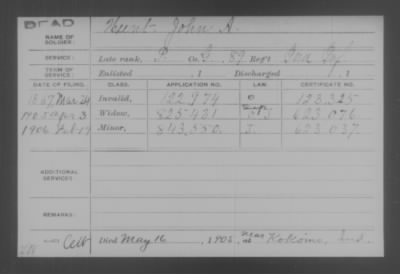 DEAD
NAME OF SOLDIER: Hunt John A.
SERVICE: Late rank, P. Co. G. 89 Reg't Ind Inf.
TERM OF SERVICE: Enlisted , 1 Discharged , 1
DATE OF FILING. CLASS. APPLICATION NO. LAW. CERTIFICATE NO.
1867 Mar 24 Invalid, 122.974 123.325
1905 Apr 3 Widow, 825431 623.076
1906 Feb 17 Minor, 843.550. 623.037.
ADDITIONAL SERVICES:
REMARKS:
Died May 16, 1905, near at Kokomo, Ind.